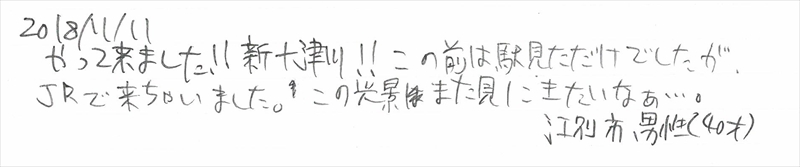 2018/11/11
やって来ました!!新十津川!!この前は駅見ただけでしたが、
JRで来ちゃいました。この光景はまた見に来たいなぁ…。
江別市 男性(40才)